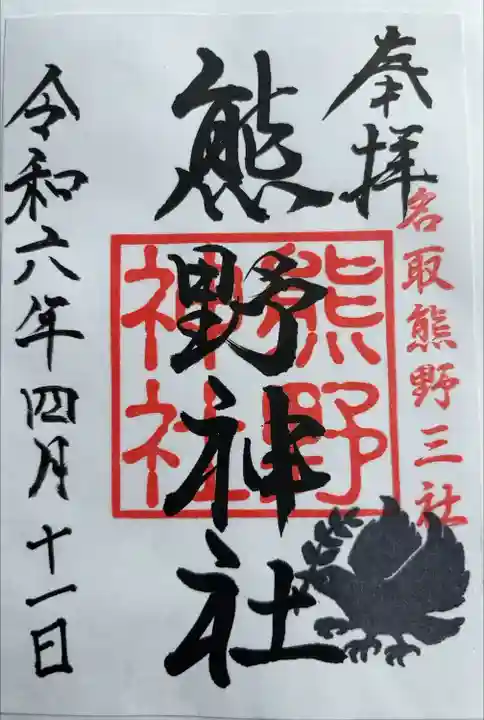 奉拝
名取熊野三社
熊野神社
熊野
神社
令和六年四月十一日